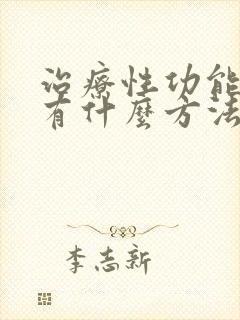 治療性功能
有什麼方法
李志新